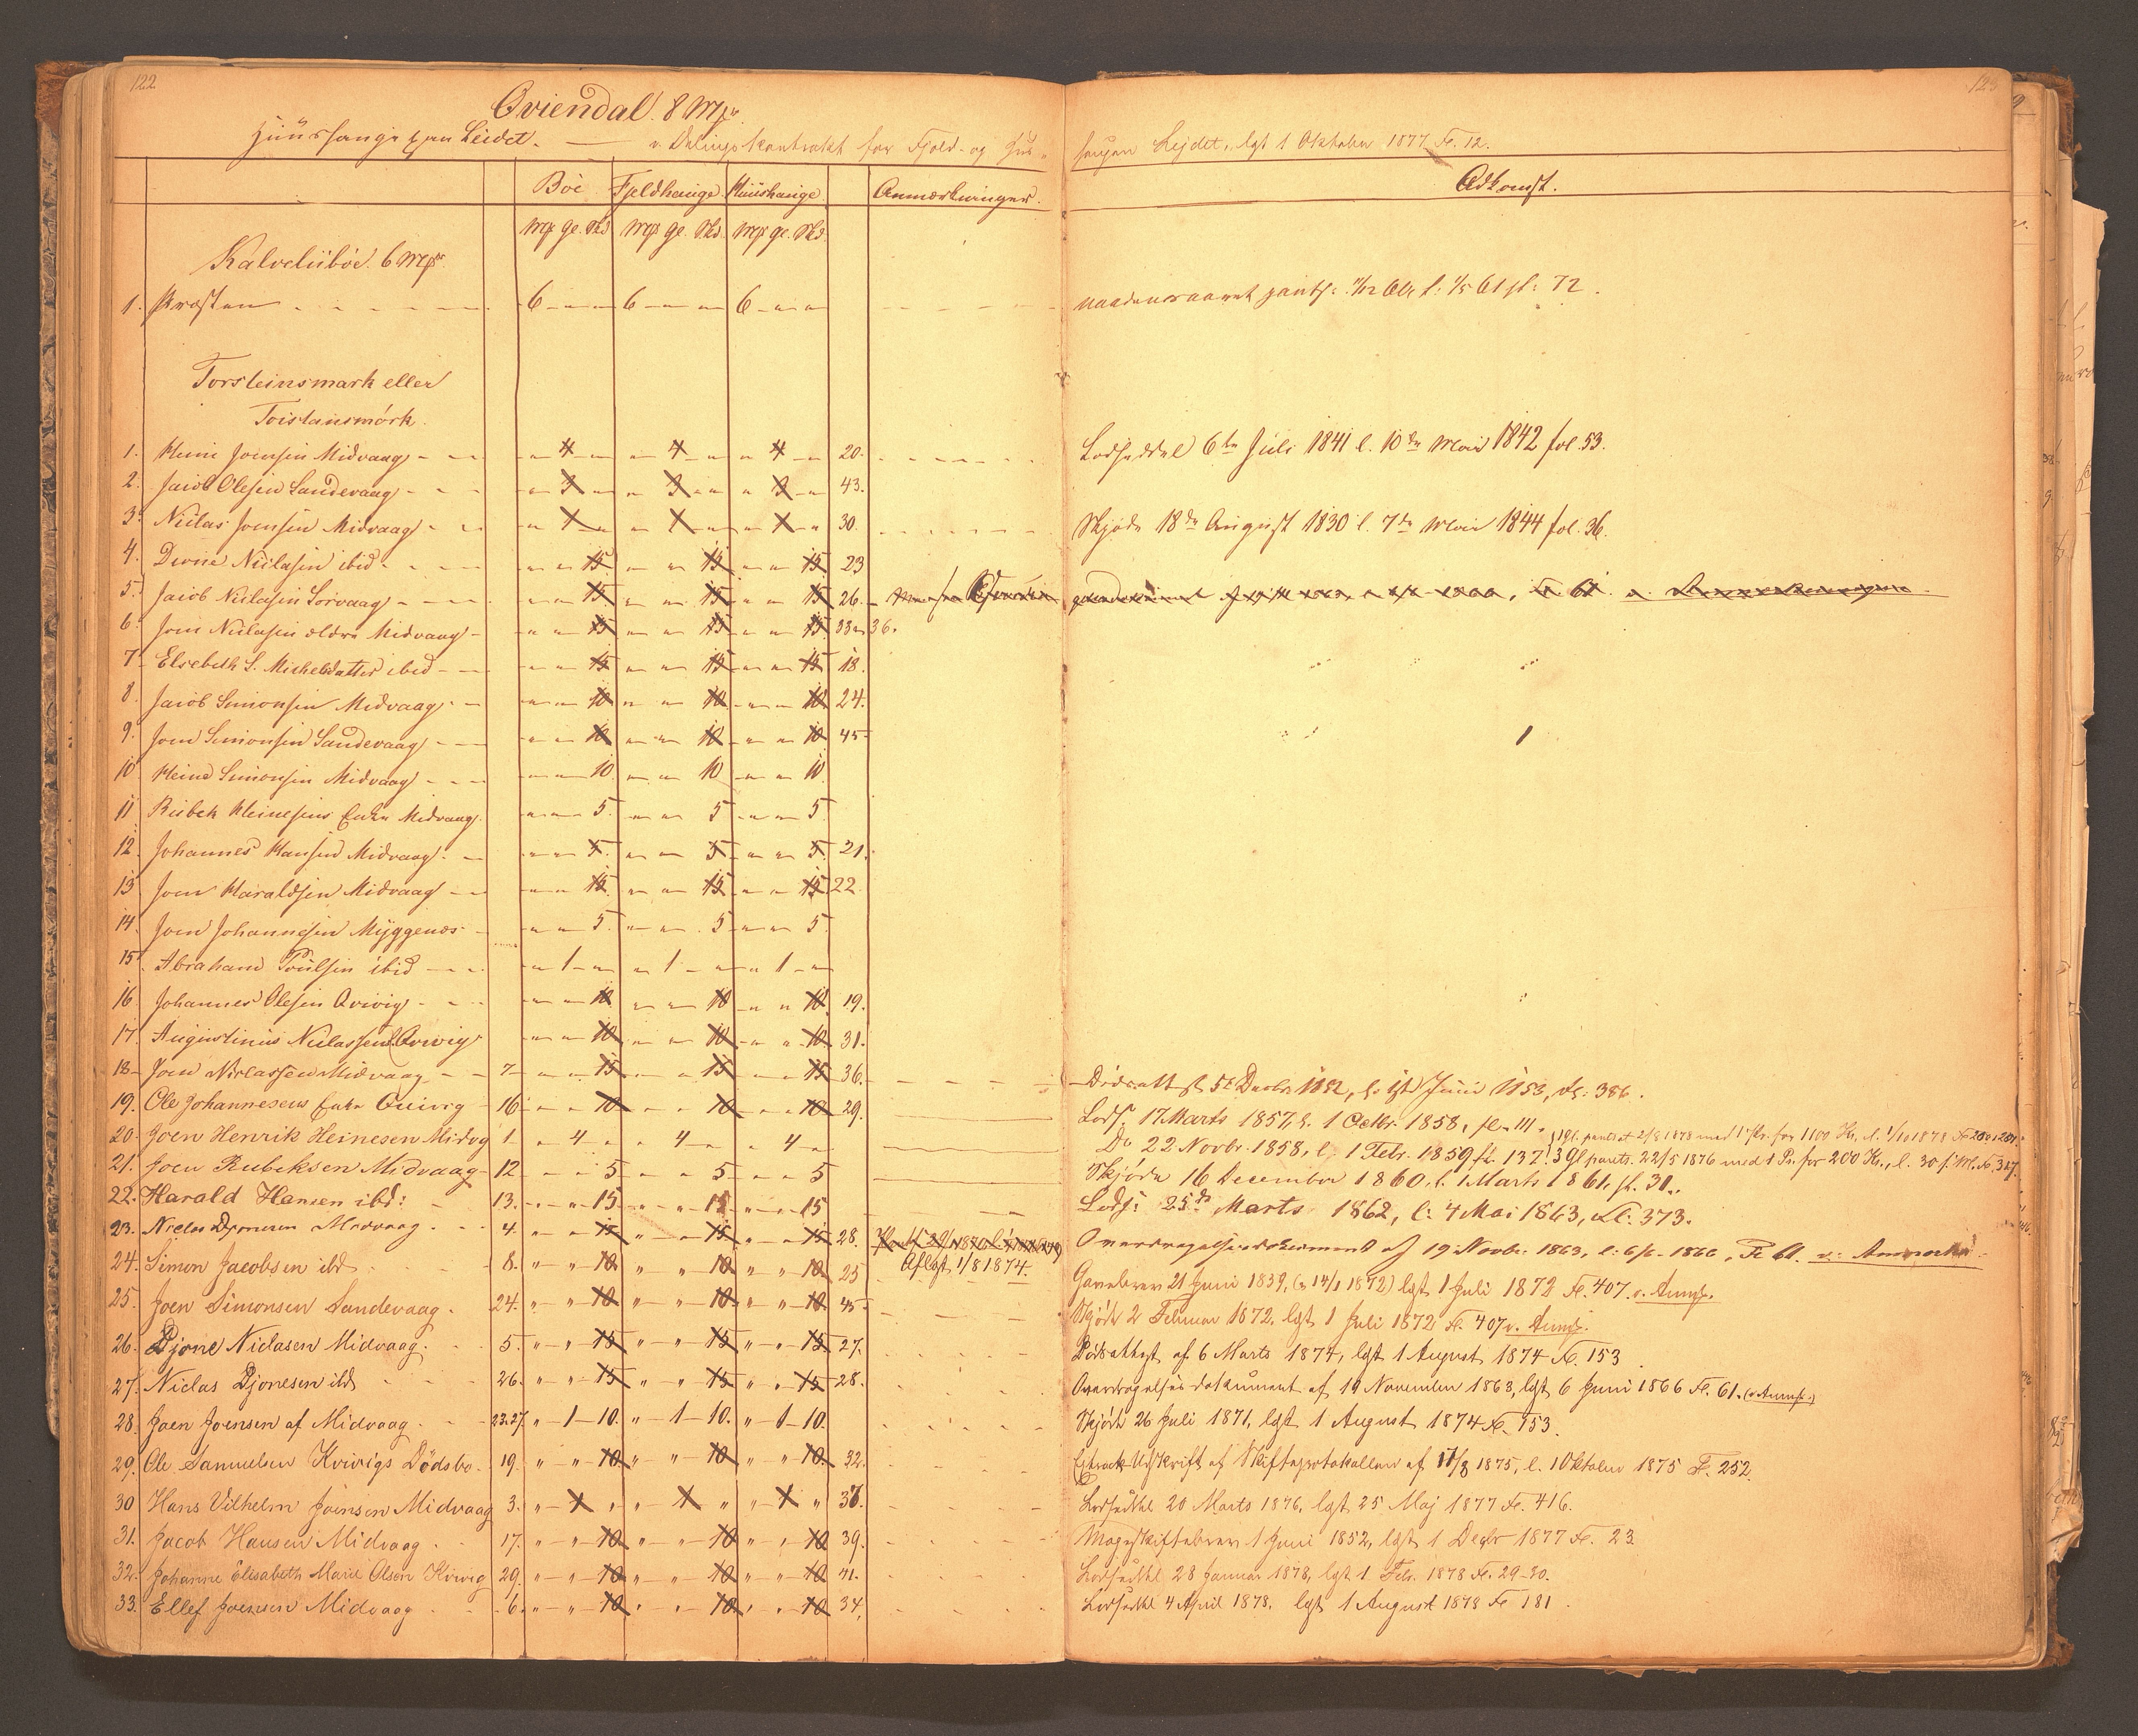 122
123
Qviendal. 8 Mk
Leidet. — v. Delingskontrakt for Fjeld- og Hus-
haugen Lejdet, lgst 1 Oktober 1877 Fo. 12.
Böe Fjeldhauge Huushauge Anmærkninger. Adkomst.
Mk Gl. Skd. Mk Gl. Skd. Mk Gl. Skd.
6 Mk
1. Præsten 6 — — 6 — — 6 — — fl: 72.
Torsteinsmark eller
Toistansmörk.
1. Heine Joensen Midvaag 4 4 4 20. Lodseddel 6te Juli 1841 l. 10de Mai 1842 fol. 53.
2. Jacob Olesen Sandevaag 3 3 3 43.
3. Niclas Joensen Midvaag 1 1 1 30. Skjöde 18de August 1830 l. 7de Mai 1844 fol. 36.
4. Dione Niclasen ibid 15 15 15 23
5. Jacob Niclasen Sorvaag 15 15 15 26.
6. Joen Niclasen ældre Midvaag 15 15 15 33 36.
7. Elsebeth S. Michelsdatter ibid 15 15 15 18.
8. Jacob Simonsen Midvaag 10 10 10 24.
9. Joen Simonsen Sandevaag 10 10 10 45
10 Heine Simonsen Midvaag 10 10 10
11 Heinesens Enke Midvaag 5 5 5
12. Johannes Hansen Midvaag 5 5 5 21.
13 Joen Haraldsen Midvaag 15 15 15 22
14 Joen Johannesen Myggenæs 5 5 5
15 Abraham Poulsen ibid 1 1 1
16 Johannes Olesen Qvivig 10 10 10 19.
17. Augustinus Niclassen Qvivig 10 10 10 31.
18 Joen Niclassen Midvaag 7 15 15 15 36. Juni 1853, fl: 386.
19. Ole Johannesens Enke Quivig 16 10 10 10 29. Lods. 17 Marts 1857, l. 1 Octbr. 1858, fl. 111.
20. Joen Henrik Heinesen Midvg 1 4 4 4 Do 22 Novbr. 1858, l. 1 Febr. 1859 fl. 137.
1 Gl. pantsat 2/8 1878 med 1 Pr. for 1100 Kr. l. 1/10 1878
3 Gl pants. 22/5 1876 med 1 Pr. for 200 Kr., l. 30 s. M. Fo. 327.
21. Joen Rubeksen Midvaag 12 5 5 5 Skjöde 16 December 1860, l. 1 Marts 1861, fl. 31.
22. Harald Hansen ibd: 13. 15 15 15 Lods: 25de Marts 1862, l: 4 Mai 1863, fl: 373.
23. Niclas Djonesen Midvaag 4. 15 15 15 28. Overdragelsesdokument af 19 Novbr: 1863, l: 6/6 1866, Fo 61. v: Anmærkn.
24. Simon Jacobsen ibd 8. 10 10 10 25 Aflyst 1/8 1874. Gavebrev 21 Juni 1839, (14/1 1872) lgst 1 Juli 1872 Fo. 407. v. Anmk.
25. Joen Simonsen Sandevaag 24. 10 10 10 45 Skjöde 2 Februar 1872, lgst 1 Juli 1872 Fo. 407 v. Anmk.
26. Djone Niclasen Midvaag. 5. 15 15 15 27. Dödsattest af 6 Marts 1874, lgst 1 August 1874 Fo. 153
27. Niclas Djonesen ibd 26. 15 15 15 28. Overdragelsesdokument af 19 November 1863, lgst 6 Juni 1866 Fo. 61. (v Anmk.)
28. Joen Joensen af Midvaag 23.27. 1 — 10. 1 — 10. 1 — 10. Skjöde 26 Juli 1871, lgst 1 August 1874 Fo. 153.
29. Ole Samuelsen Kvivigs Dödsbo. 19. 10 10 10 32. Extrackt Udskrift af Skifteprotokollen af 17/8 1875, l. 1 Oktober 1875 Fo. 252.
30 Hans Vilhelm Joensen Midvaag 3. 1 1 1 Lodseddel 20 Marts 1876, lgst 25 Maj 1877 Fo. 416.
31. Jacob Hansen Midvaag 17. 10 10 10 39. Mageskiftebrev 1 Juni 1852, lgst 1 Decbr 1877 Fo. 23.
32. Johanne Elisabeth Marie Olsen Kvivig 29. 10 10 10 41. Lodseddel 28 Januar 1878, lgst 1 Febr. 1878 Fo. 29-30.
33. Ellef Joensen Midvaag 6. 10 10 10 34. Lodseddel 4 April 1878. lgst 1 August 1878 Fo 181.